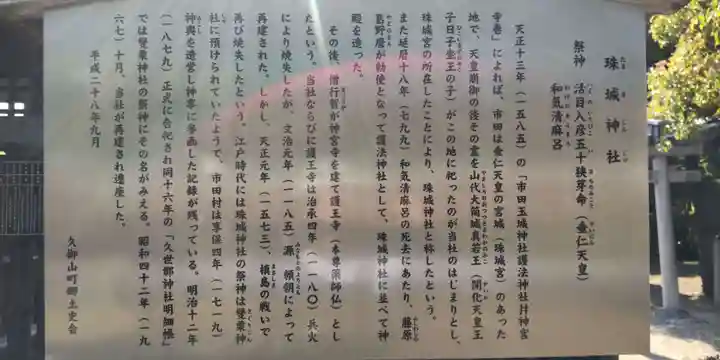 珠城神社
たまきじんじゃ
祭神 活目入彦五十狭芽命(垂仁天皇)
和気清麻呂
わけのきよまろ
天正十三年(一五八五)の「市田玉城神社護法神社幷神宮
寺巻」によれば、市田は垂仁天皇の宮城(珠城宮)のあった
地で、天皇崩御の後その霊を山代大筒城真若王(開化天皇王
子日子坐王の子)がこの地に祀ったのが当社のはじまりとし、
珠城宮の所在したことにより、珠城神社と称したという。
また延暦十八年(七九九)和気清麻呂の死去にあたり、藤原
葛野麿が勅使となって護法神社として、珠城神社に並べて神
殿を造った。
その後、僧行智が神宮寺を建て護王寺(本尊薬師仏)とし
たという。当社ならびに護王寺は治承四年(一一八〇)兵火
により焼失したが、文治元年(一一八五)源頼朝によって
再建された。しかし、天正元年(一五七三)、槙島の戦いで
再び焼失したという。江戸時代には珠城神社の祭神は雙栗神
社に預けられていたようで、市田村は享保四年(一七一九)
神輿を造営し神事に参画した記録が残っている。明治十二年
(一八七九)正式に合祀され同十六年の「久世郡神社明細帳」
では雙栗神社の祭神にその名がみえる。昭和四十二年(一九
六七)十月、当社が再建され遷座した。
平成二十八年九月
久御山町郷土史会